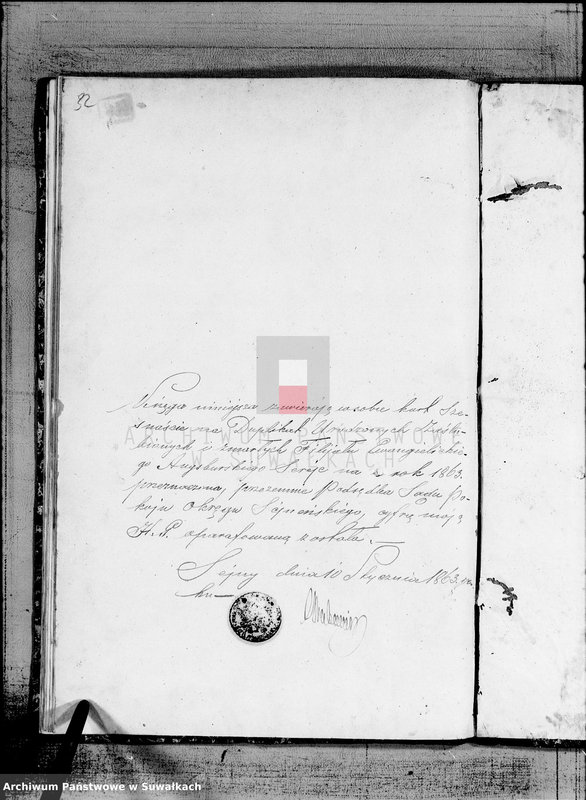 32
Księga niniejsza zawierająca w sobie kart Sze-
snaście na Duplikat Urodzonych Zaślu-
bionych i zmarłych Filijału Ewangelickie-
go Augsburskiego Sereje na rok 1863.
przeznaczona, przezemnie Podsędka Sądu Po-
koju Okręgu Sejneńskiego, cyfrą moją
H. P. oparafowaną została. —
Sejny dnia 10 Stycznia 1863, ro
ku —
ARCHIWUM PAŃSTWOWE
W SUWAŁKACH
Archiwum Państwowe w Suwałkach